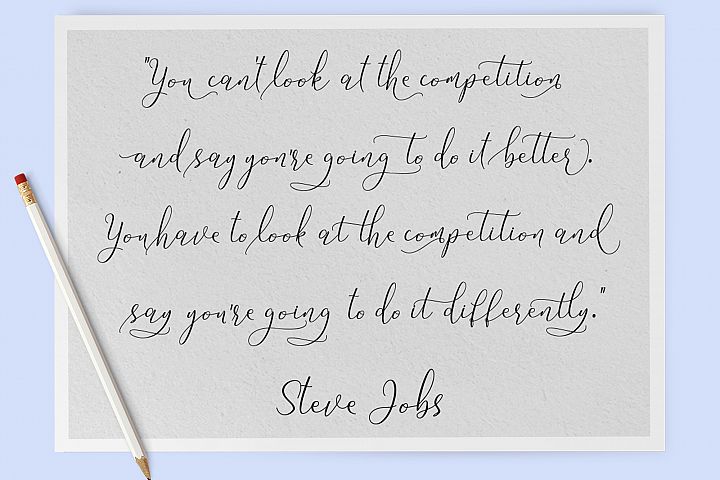 "You can't look at the competition
and say you're going to do it better.
You have to look at the competition and
say you're going to do it differently."
Steve Jobs